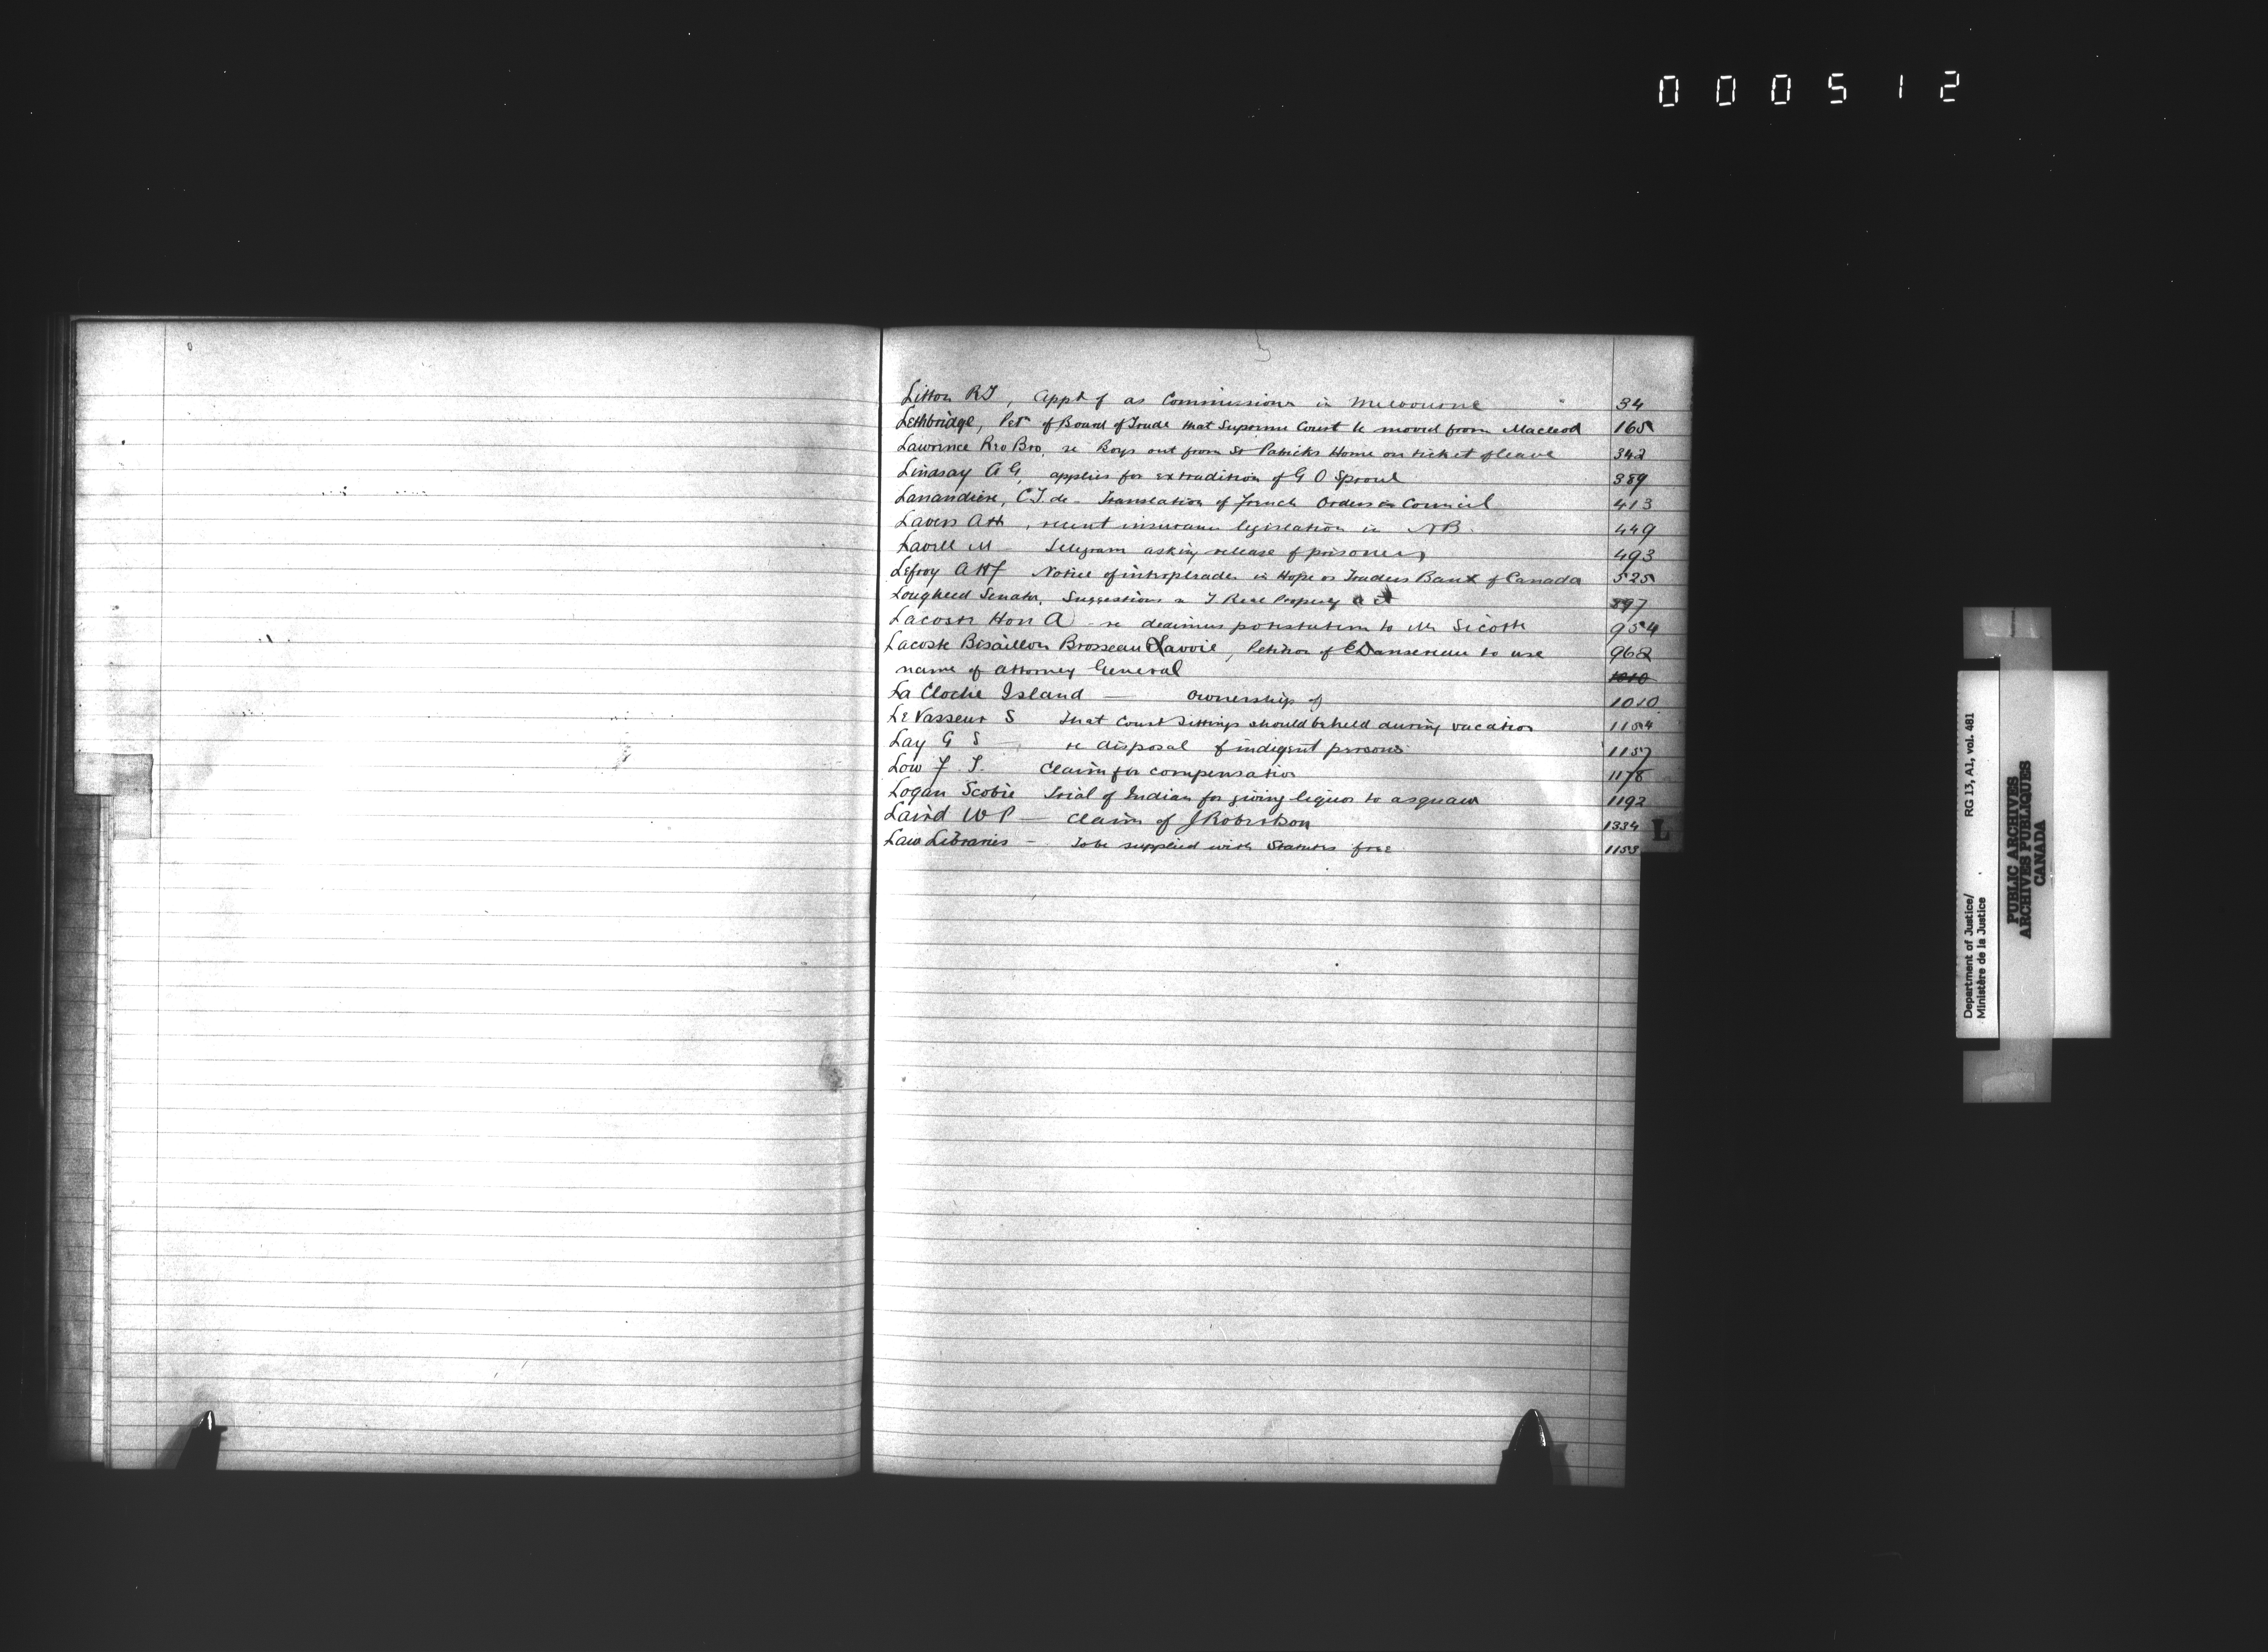 000512
Litton RJ, appt of as Commissioner in Melbourne 34
Lethbridge, Petn of Board of Trade that Supreme Court be moved from Macleod 165
Lawrence Rev Bro, re Boys out from St Patricks Home on ticket of leave 342
Lindsay A G, applies for extradition of G O Sproul 389
Lanandiere, C.T. de - Translation of French Orders in Council 413
Lavers A H, recent insurance legislation in NB. 449
Lavell M - Telegram asking release of prisoners 493
Lefroy AHF Notice of interpleader in Hope vs Traders Bank of Canada 525
Lougheed Senator, Suggestions Real Property act 597
Lacoste Hon A - re dedimus potestatem to Mr Sicotte 954
Lacoste Bisaillon Brosseau & Lavoie, Petition of C Dansereau to use 962
name of attorney General 1010
La Cloche Island — ownership of 1010
LeVasseur S That Court Sittings should be held during vacation 1154
Lay G S - re disposal of indigent persons 1157
Low F. T. Claim for compensation 1178
Logan Scobie Trial of Indian for giving liquor to asquaw 1192
Laird W P — Claim of J Robertson 1334
Law Libraries - To be supplied with Statutes free 1153
L
Department of Justice/ RG 13, A1, vol. 481
Ministère de la Justice
PUBLIC ARCHIVES
ARCHIVES PUBLIQUES
CANADA